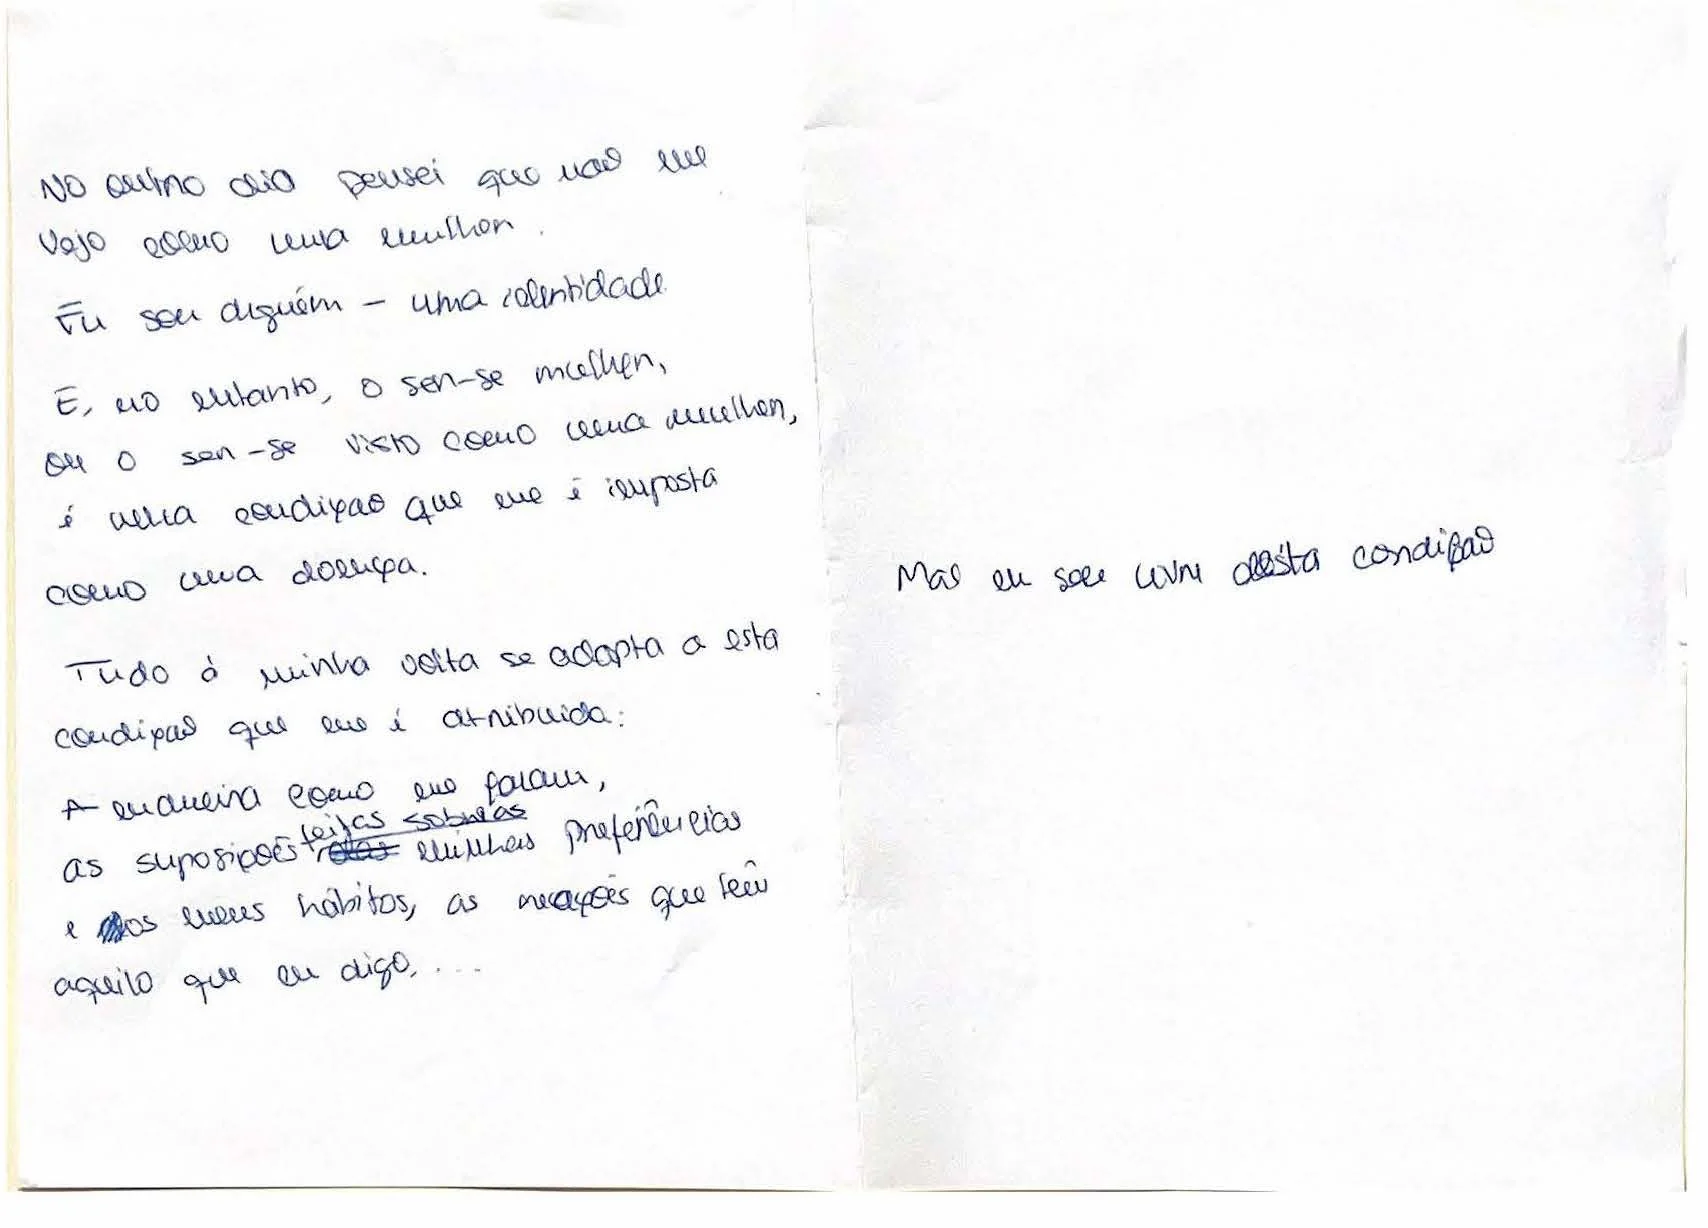 No outro dia pensei que não me
vejo como uma mulher.
Eu sou alguém – uma identidade
E, no entanto, o ser-se mulher,
ou o ser-se visto como uma mulher,
é uma condição que me é imposta
como uma doença.
Tudo à minha volta se adapta a esta
condição que me é atribuida:
A maneira como me falam,
as suposições feitas sobre as minhas preferências
e os meus hábitos, as reações que têm
aquilo que eu digo, ...
Mas eu sou livre desta condição